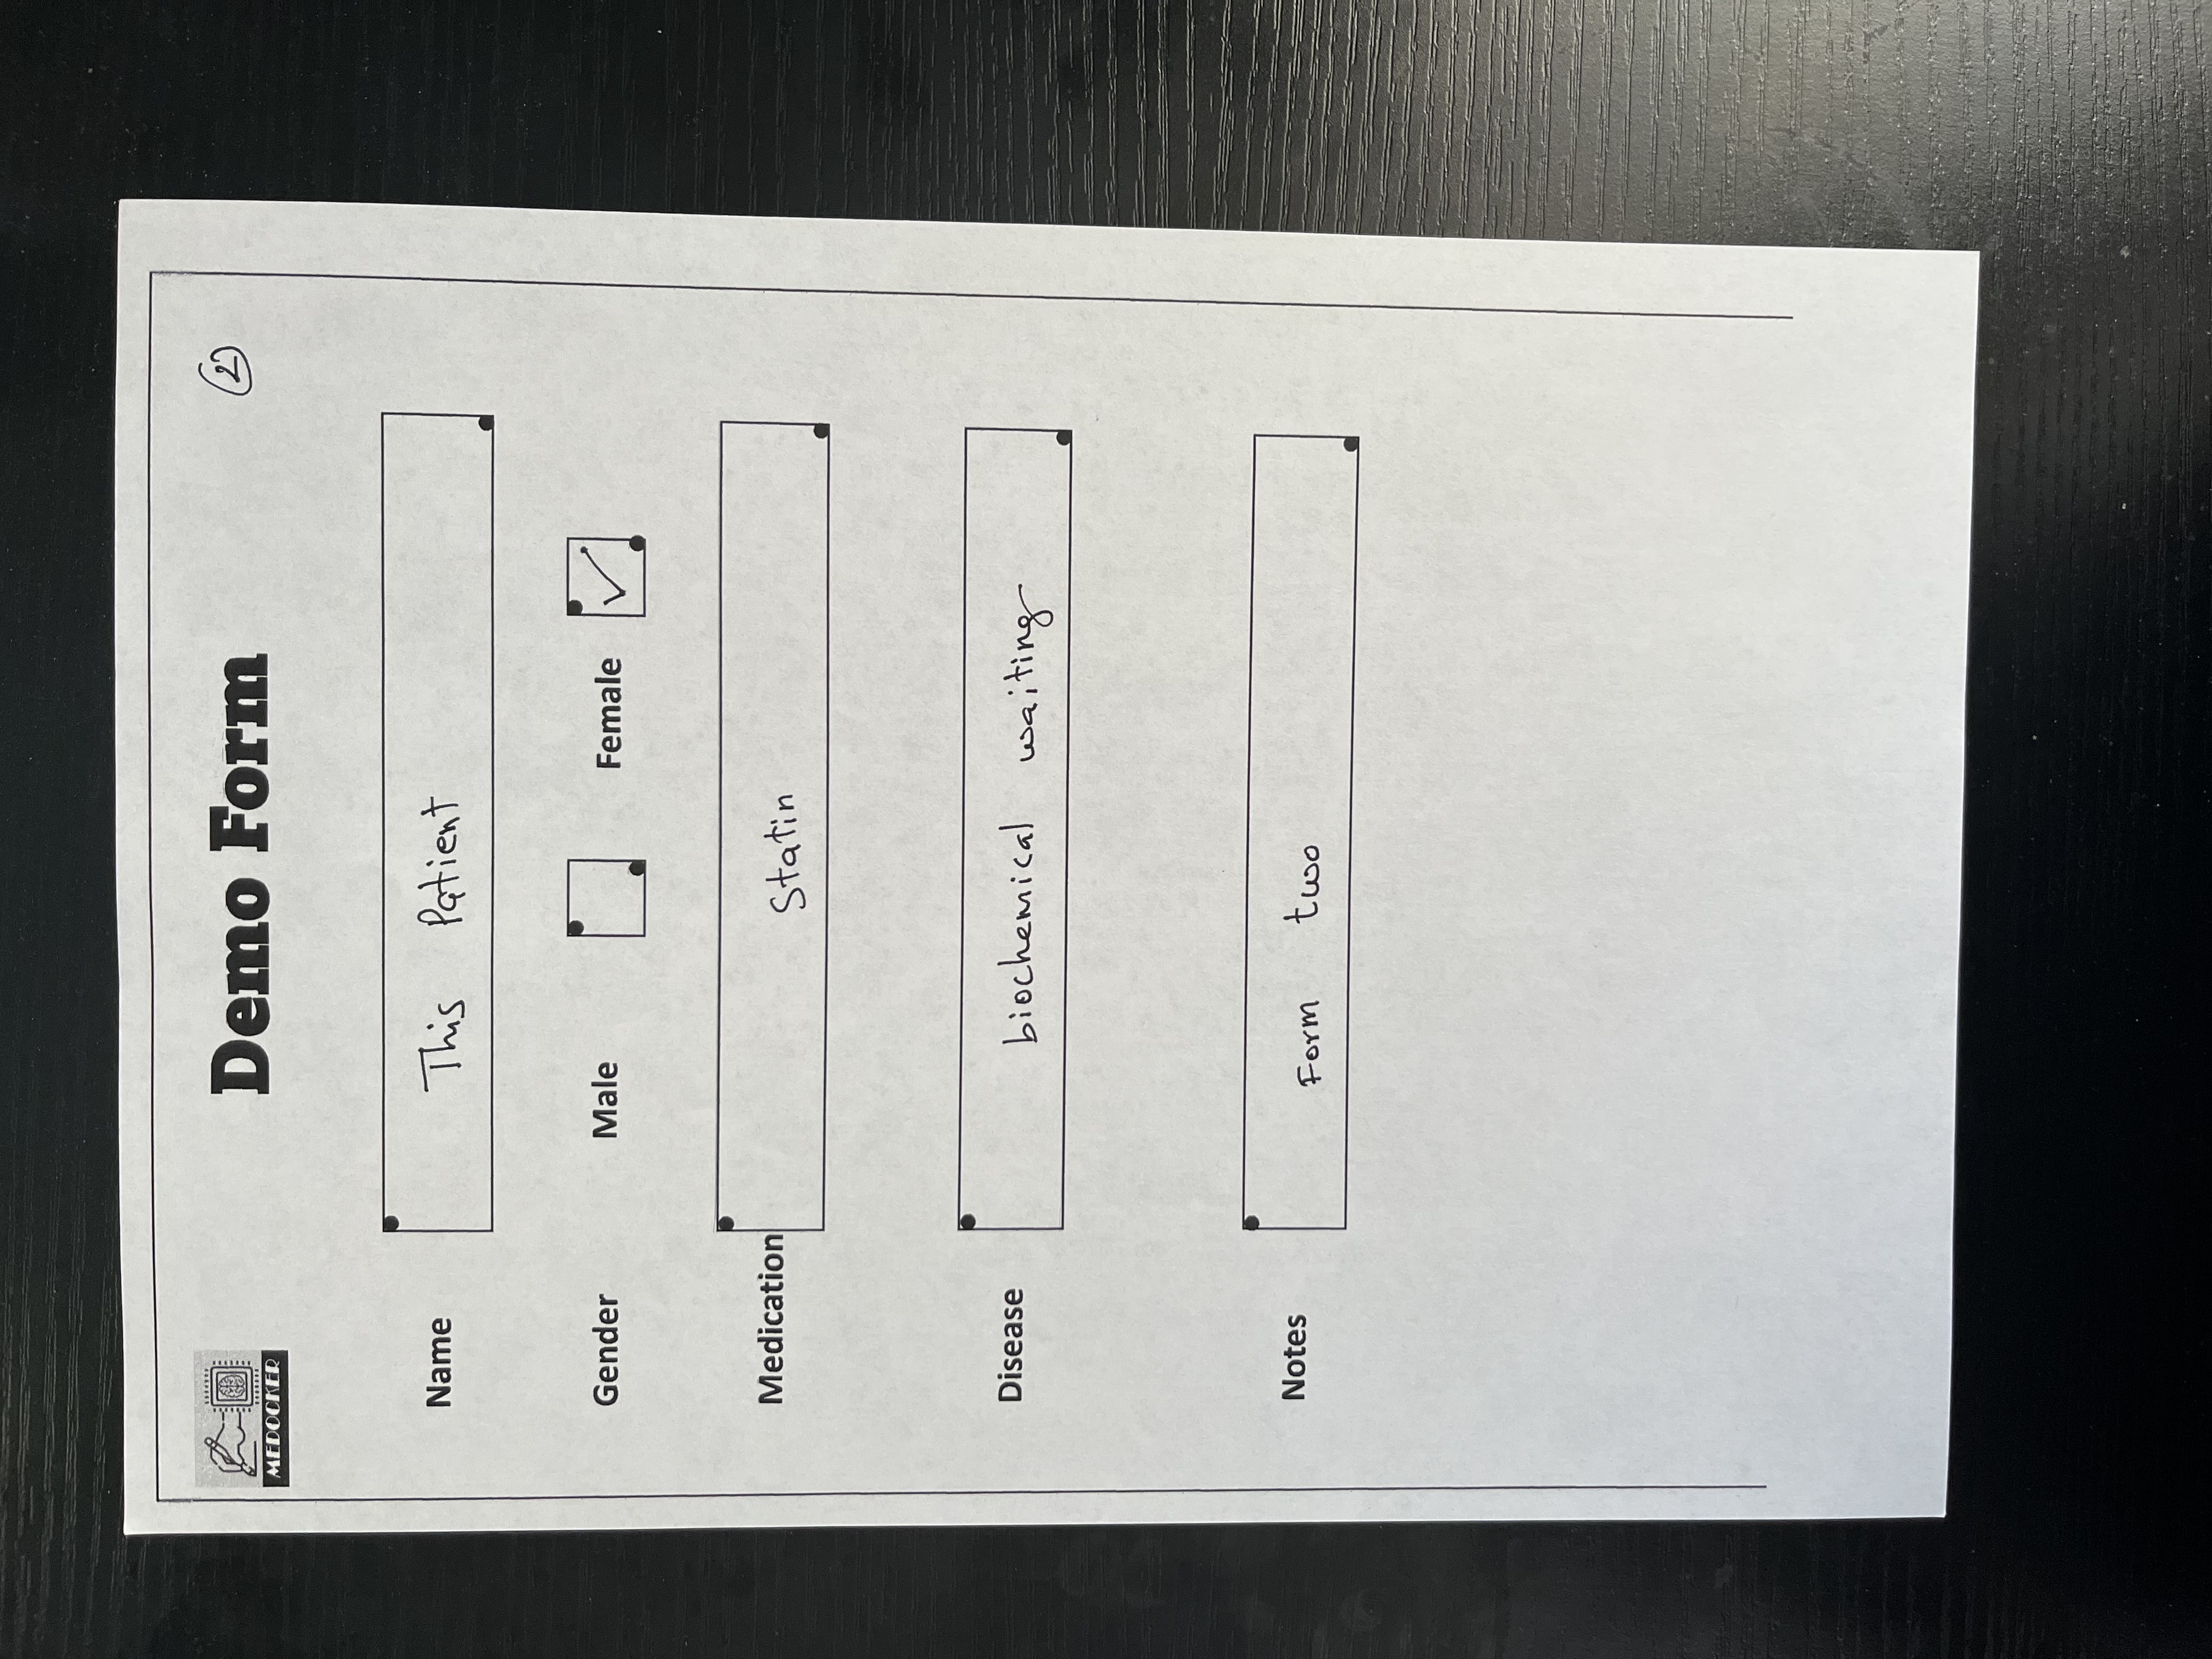 MEDOCKER
Demo Form
2
Name This Patient
Gender Male Female ✓
Medication Statin
Disease biochemical waiting
Notes Form two